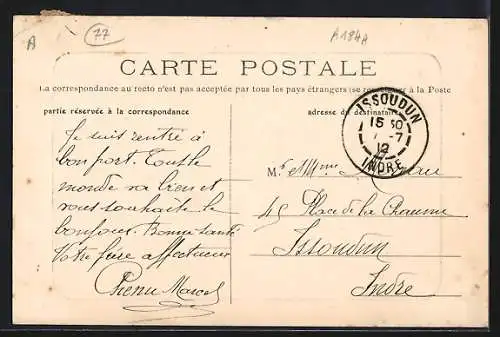 A
77
A184A
CARTE POSTALE
La correspondance au recto n'est pas acceptée par tous les pays étrangers (se renseigner à la Poste)
partie réservée à la correspondance
adresse du destinataire
ISSOUDUN
15 30
-7
12
INDRE
Je suis rentré à
bon port. Tout le
monde va bien et
vous souhaite le
bonjour. Bonne santé
Votre
affectueux
Chenu Marcel
Mr et Mme
45 Place de la Chaume
Issoudun
Indre